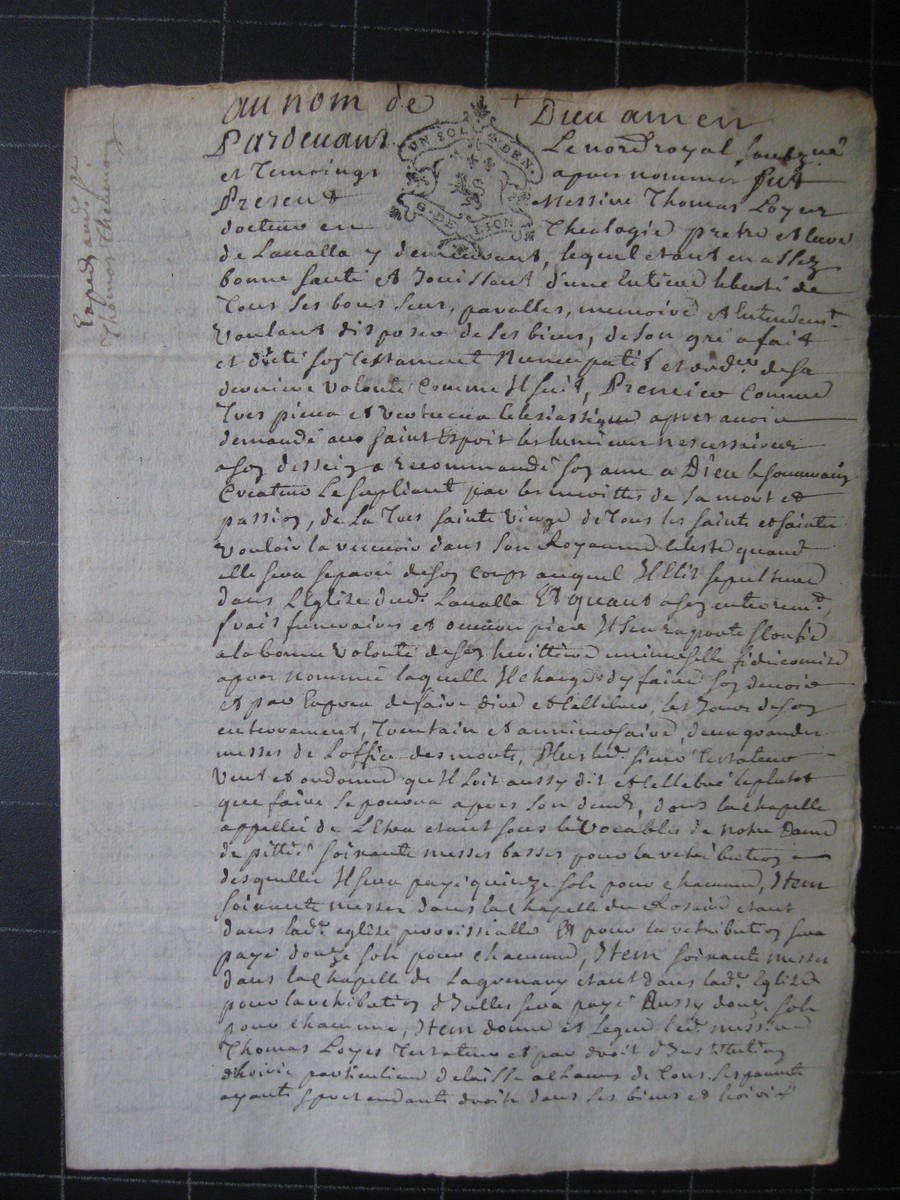 au nom de Dieu amen
Pardevant Le nore royal soubzné
et Temoings apres nommes fut
Present Messire Thomas Loyer
docteur en Theologie pretre et curé
de Lavalla y demeurant, lequel etant en assez
bonne santé et Jouissant d'une Entiere liberté de
Tous ses bons sens, parolles, memoire et Entendemt
Voulant disposer de ses biens, de son gré a fait
et dicté son Testament Nuncupatif et ordre de sa
derniere volonté Comme Il suit, Premier Comme
Tres pieux et vertueux Eclesiastique apres avoir
demandé au saint Esprit les lumieres nessessaires
a son dessein a recommandé son ame a Dieu le souverain
Createur Le supliant par les merittes de sa mort et
passion, de La Tres sainte Vierge de Tous les saints et saintes
Vouloir la recevoir dans son Royaume Celeste quand
elle sera separée de son Corps auquel Il Elit sepulture
dans L'Eglise dudt Lavalla Et quant a son enterremt,
frais funeraires et oeuvres pies Il s'en raporte
a la bonne volonté de son heritiere universelle fideicomise
apres nommée laquelle Il charge d'y faire son devoir
et par Exprés de faire dire et Cellebrer, les Jours de son
enterrement, Trentain et anniversaire, deux grandes
messes de L'office des morts, Plus led. sieur Testateur
Veut et ordonne qu'Il soit aussy dit et Cellebré le plutot
que faire se pourra apres son deces, dans la chapelle
appellée de L'Etra etant sous le Vocable de notre Dame
de pittié soixante messes basses pour la retribution
desquelles Il sera payé quinze sols pour chacune, Item
soixante messes dans la Chapelle du Rosaire etant
dans lade eglise parroissialle Et pour la retribution sera
payé douze sols pour chacune, Item soixante messes
dans la Chapelle de etant dans lade Eglise
pour la retribution d'Icelles sera payé Aussy douze sols
pour chacune, Item donne et Legue led. messire
Thomas Loyer Testateur et par droit d'Institution
d'hoirie particuliere delaisse a chacun de Tous ses parents
ayants et pretendants droits dans ses biens et hoirie
UN SOL 8 DEN.
G. DE LION
Thomas